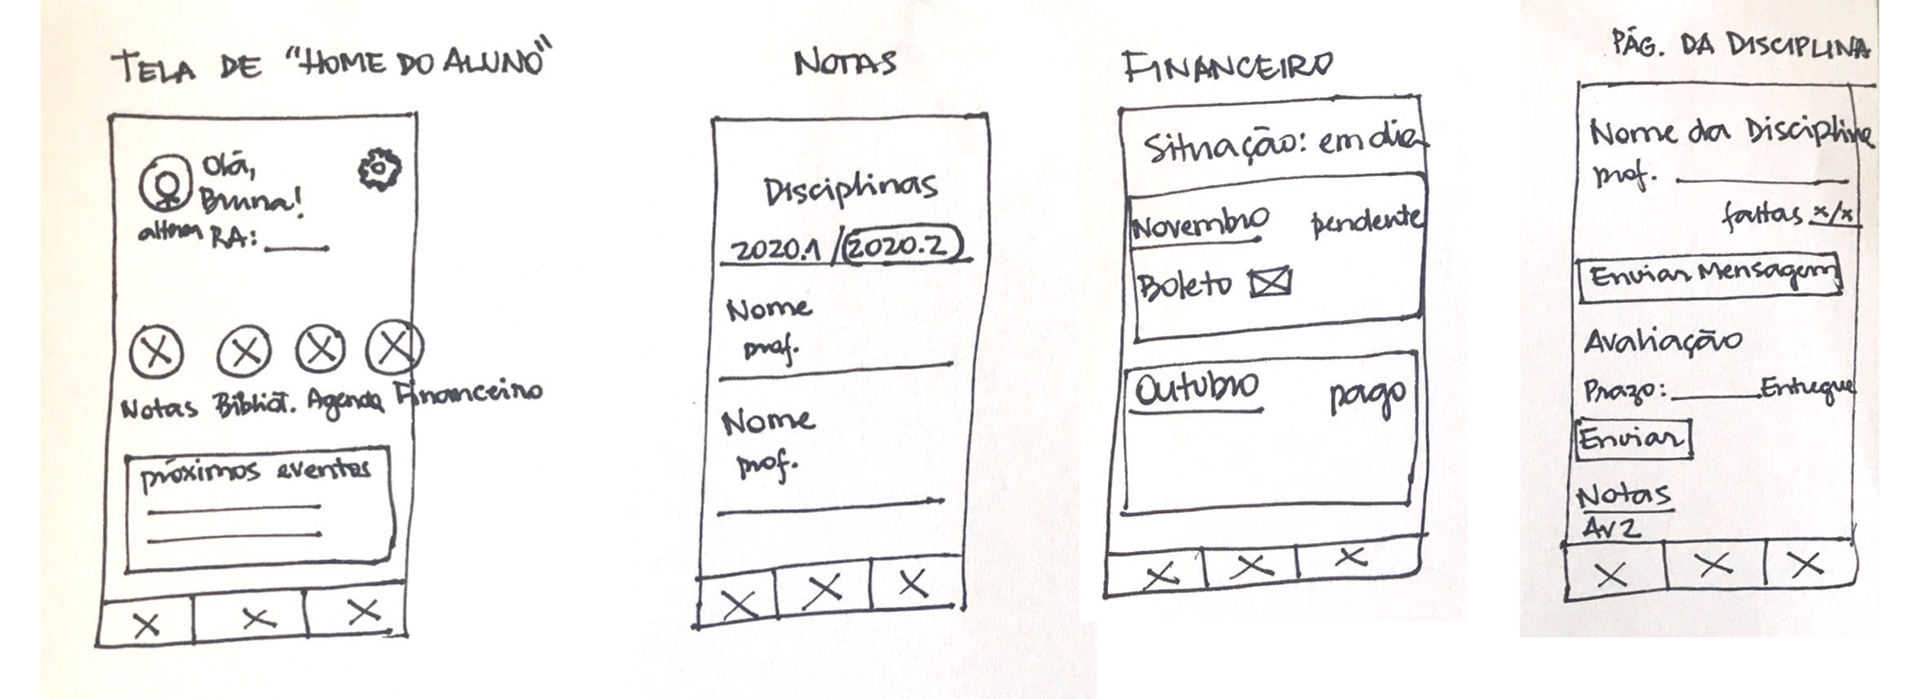 TELA DE "HOME DO ALUNO"
Olá,
Bruna!
RA:
Notas Bibliot. Agenda Financeiro
próximos eventos
NOTAS
Disciplinas
2020.1 / 2020.2
Nome
prof.
Nome
prof.
FINANCEIRO
Situação: em dia
Novembro pendente
Boleto
Outubro pago
PÁG. DA DISCIPLINA
Nome da Disciplina
prof.
faltas x/x
Enviar Mensagem
Avaliação
Prazo: Entregue
Enviar
Notas
AV2